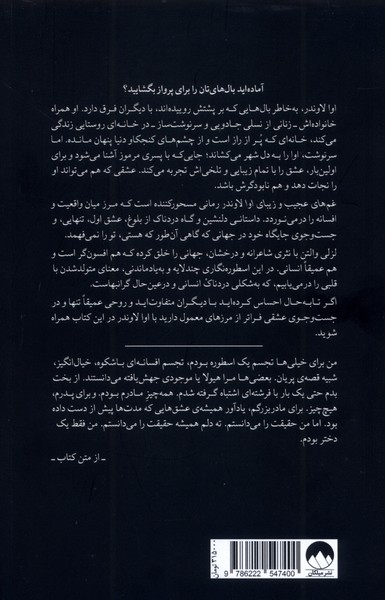 آماده‌اید بال‌های‌تان را برای پرواز بگشایید؟
آوا لاوندر، به‌خاطر بال‌هایی که بر پشتش روییده‌اند، با دیگران فرق دارد. او همراه
خانواده‌اش ـ زنانی از نسلی جادویی و سرنوشت‌ساز ـ در خانه‌ای روستایی زندگی
می‌کند، خانه‌ای که پُر از راز است و از چشم‌های کنجکاو دنیا پنهان مانده. اما
سرنوشت، اوا را به دل شهر می‌کشاند؛ جایی‌که با پسری مرموز آشنا می‌شود و برای
اولین‌بار، عشق را با تمام زیبایی و تلخی‌اش تجربه می‌کند. عشقی که هم می‌تواند او
را نجات دهد و هم نابودگرش باشد.
غم‌های عجیب و زیبای اوا لاوندر رمانی مسحورکننده است که مرز میان واقعیت و
افسانه را درمی‌نوردد. داستانی دلنشین و گاه دردناک از بلوغ، عشق اول، تنهایی، و
جست‌وجوی جایگاه خود در جهانی که گاهی آن‌طور که هستی، تو را نمی‌فهمد.
لزلی والتن با نثری شاعرانه و درخشان، جهانی را خلق کرده که هم افسون‌گر است و
هم عمیقاً انسانی. در این اسطوره‌نگاری چندلایه و به‌یادماندنی، معنای متولدشدن با
قلبی را درمی‌یابیم، که به‌شکلی دردناک انسانی و درعین‌حال گرانبهاست.
اگر تا‌به‌حال احساس کرده‌اید با دیگران متفاوت‌اید و روحی عمیقاً تنها و در
جست‌وجوی عشقی فراتر از مرزهای معمول دارید با اوا لاوندر در این کتاب همراه
شوید.
من برای خیلی‌ها تجسم یک اسطوره بودم، تجسم افسانه‌ای باشکوه، خیال‌انگیز،
شبیه قصه‌ی پریان. بعضی‌ها مرا هیولا یا موجودی جهش‌یافته می‌دانستند. از بخت
بدم حتی یک بار با فرشته‌ای اشتباه گرفته شدم. همه‌چیزِ مادرم بودم، و برای پدرم،
هیچ‌چیز. برای مادربزرگم، یادآور همیشه‌ی عشق‌هایی که مدت‌ها پیش از دست داده
بود. اما من حقیقت را می‌دانستم. ته دلم همیشه حقیقت را می‌دانستم. من فقط یک
دختر بودم.
ـ از متن کتاب ـ
۳۱۵۰۰۰ تومان
9 786222 547400
نشر میلکان